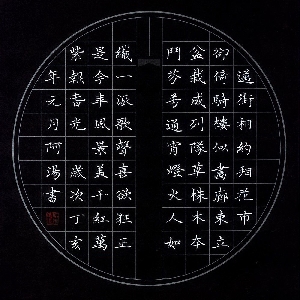 街相約花市
卻信騎樓似畫廊東立
盆栽成列隊草株木本
鬥芬芳通宵燈火人如
織一派歡聲喜欲狂正
是今年風景美千紅萬
紫報春光 歲次丁亥
年元月阿湯書